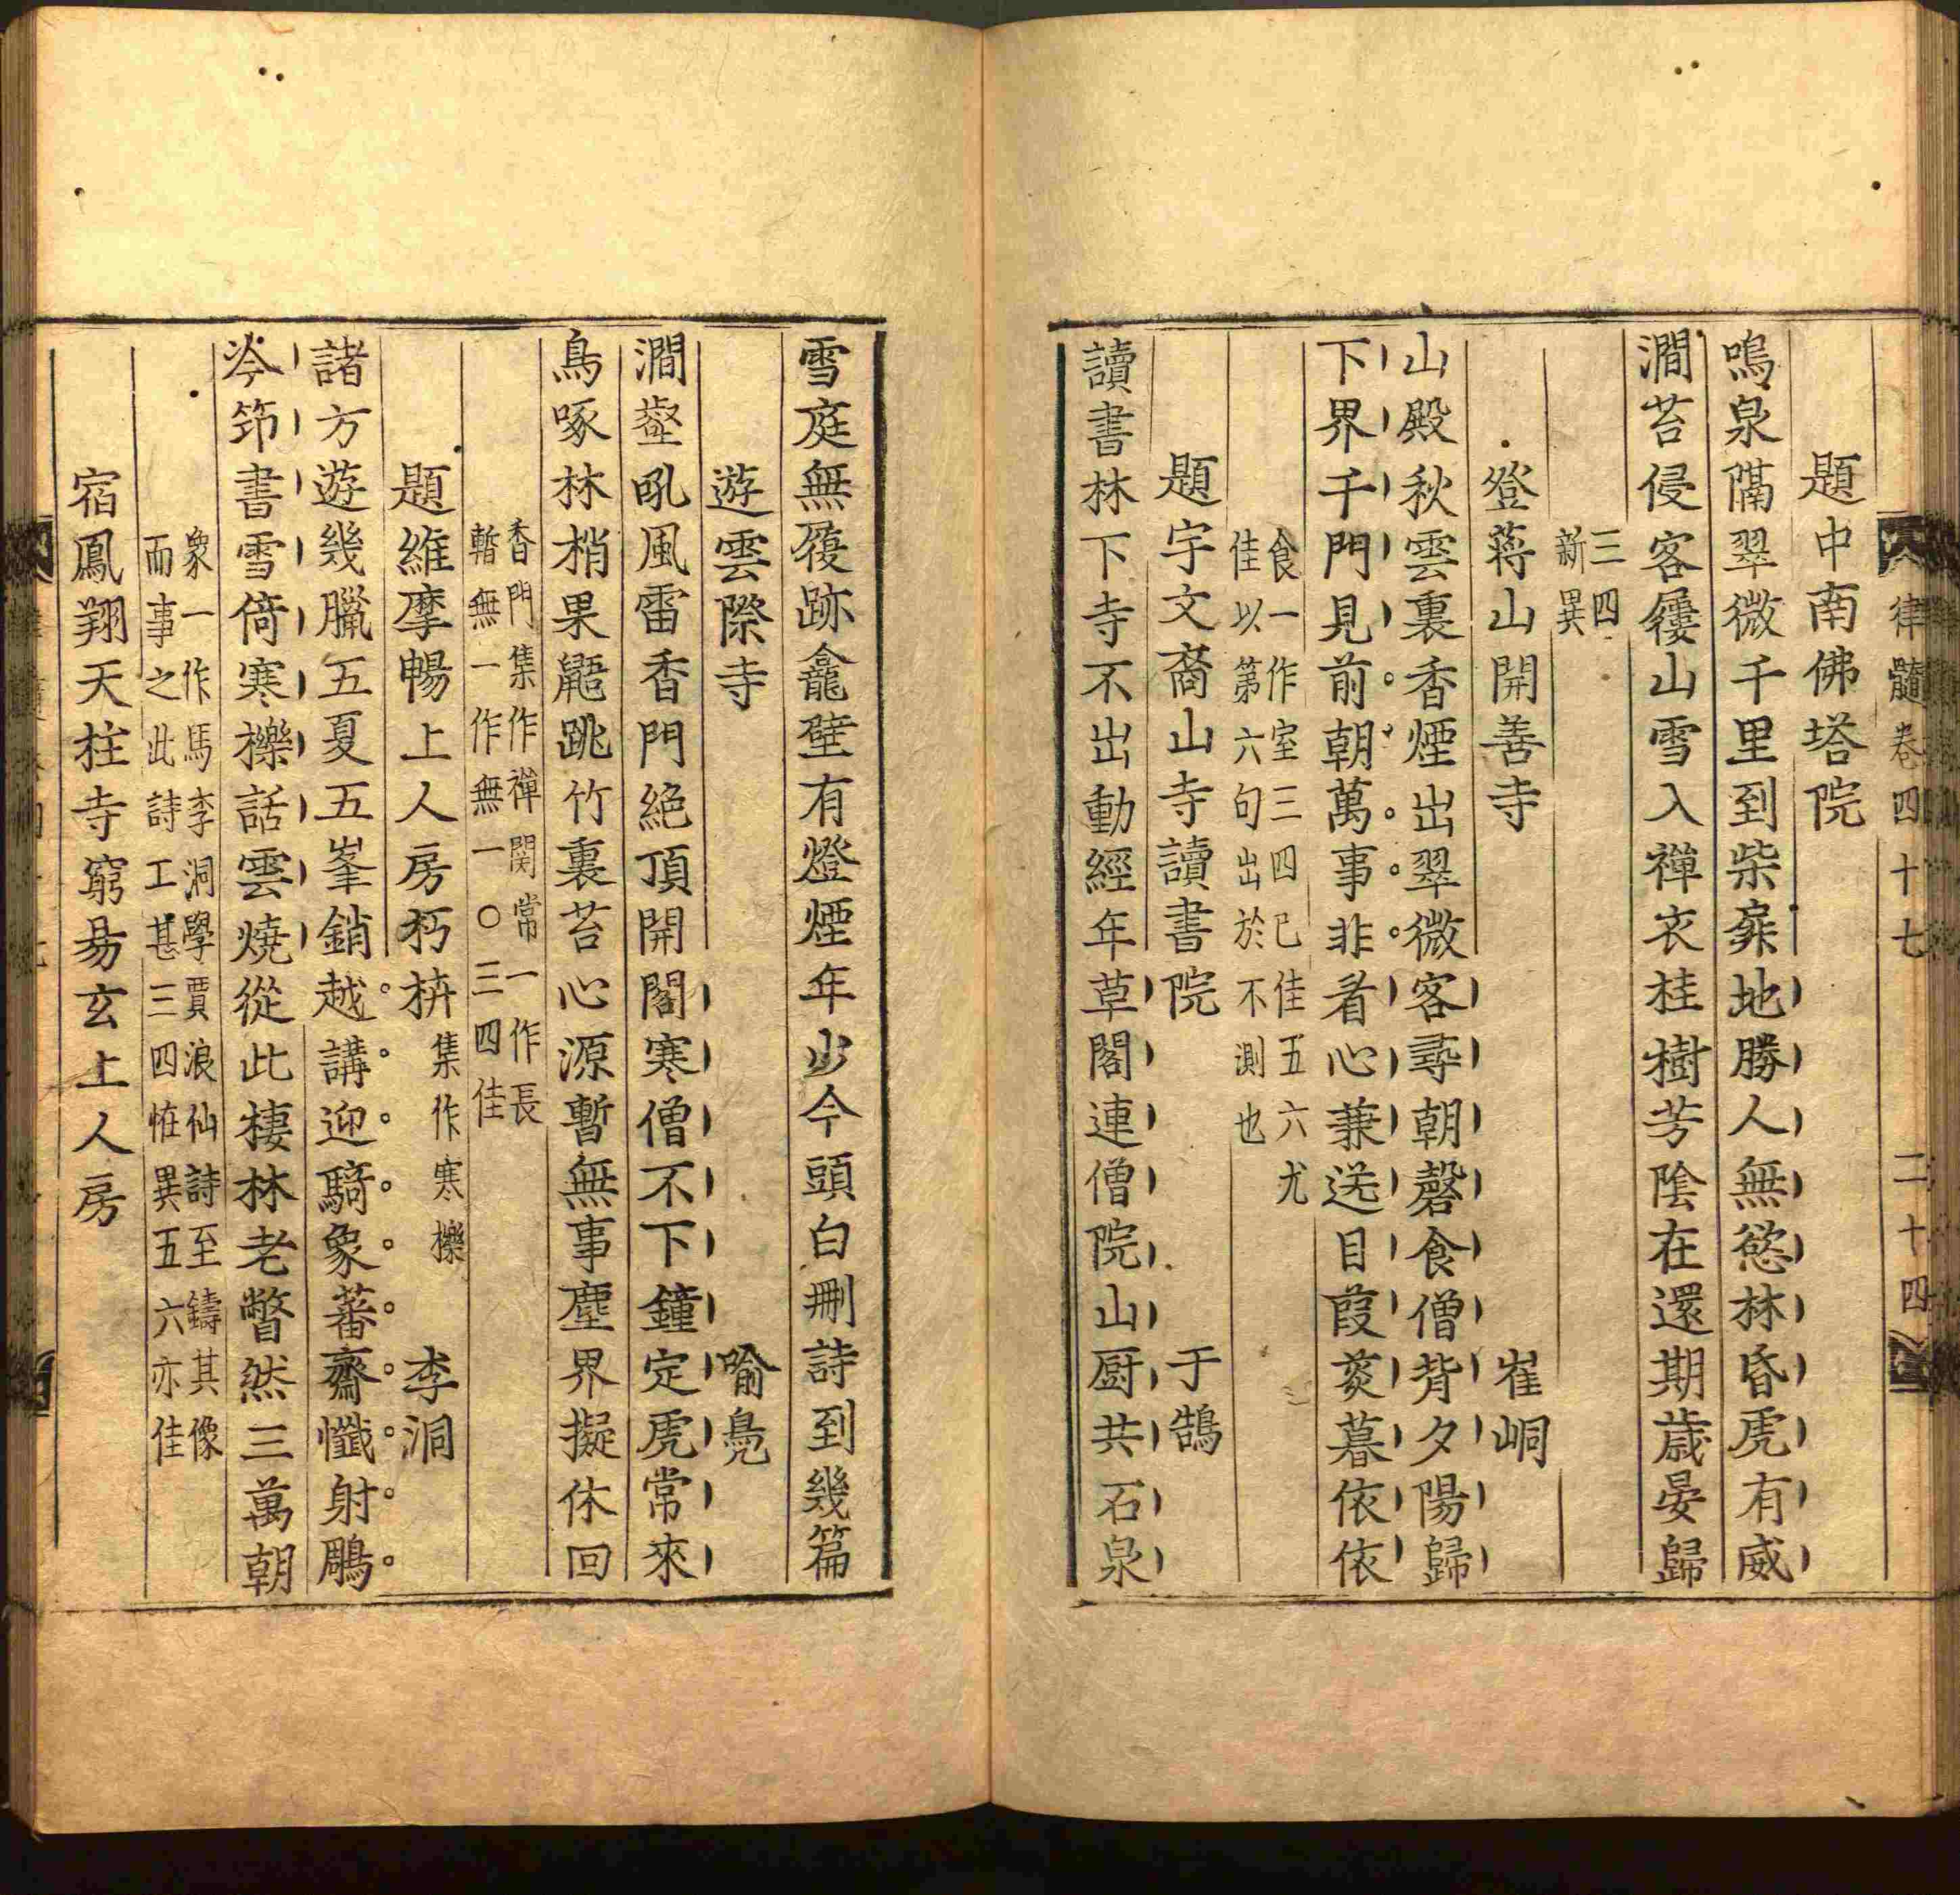 律髓卷四十七 二十四
題中南佛塔院
鳴泉隔翠微千里到柴扉地勝人無慾林昏虎有威
澗苔侵客屨山雪入禪衣桂樹芳陰在還期歲晏歸
三四
新異
登蔣山開善寺 崔峒
山殿秋雲裏香煙出翠微客尋朝磬食僧背夕陽歸
下界千門見前朝萬事非看心兼送目葭菼暮依依
食一作室三四已佳五六尤
佳以第六句出於不測也
題宇文裔山寺讀書院 于鵠
讀書林下寺不出動經年草閣連僧院山厨共石泉
雪庭無履跡龕壁有燈煙年少今頭白刪詩到幾篇
遊雲際寺 喻鳧
澗壑吼風雷香門絶頂開閣寒僧不下鐘定虎常來
鳥啄林梢果鼯跳竹裏苔心源暫無事塵界擬休回
香門集作禪関常一作長
暫無一作無一〇三四佳
題維摩暢上人房朽栟集作寒櫟 李洞
諸方遊幾臘五夏五峯銷越講迎騎象蕃齋懺射鵰
岑筇書雪倚寒櫟話雲燒從此棲林老瞥然三萬朝
衆一作馬李洞學賈浪仙詩至鑄其像
而事之此詩工甚三四恠異五六亦佳
宿鳳翔天柱寺窮昜玄上人房